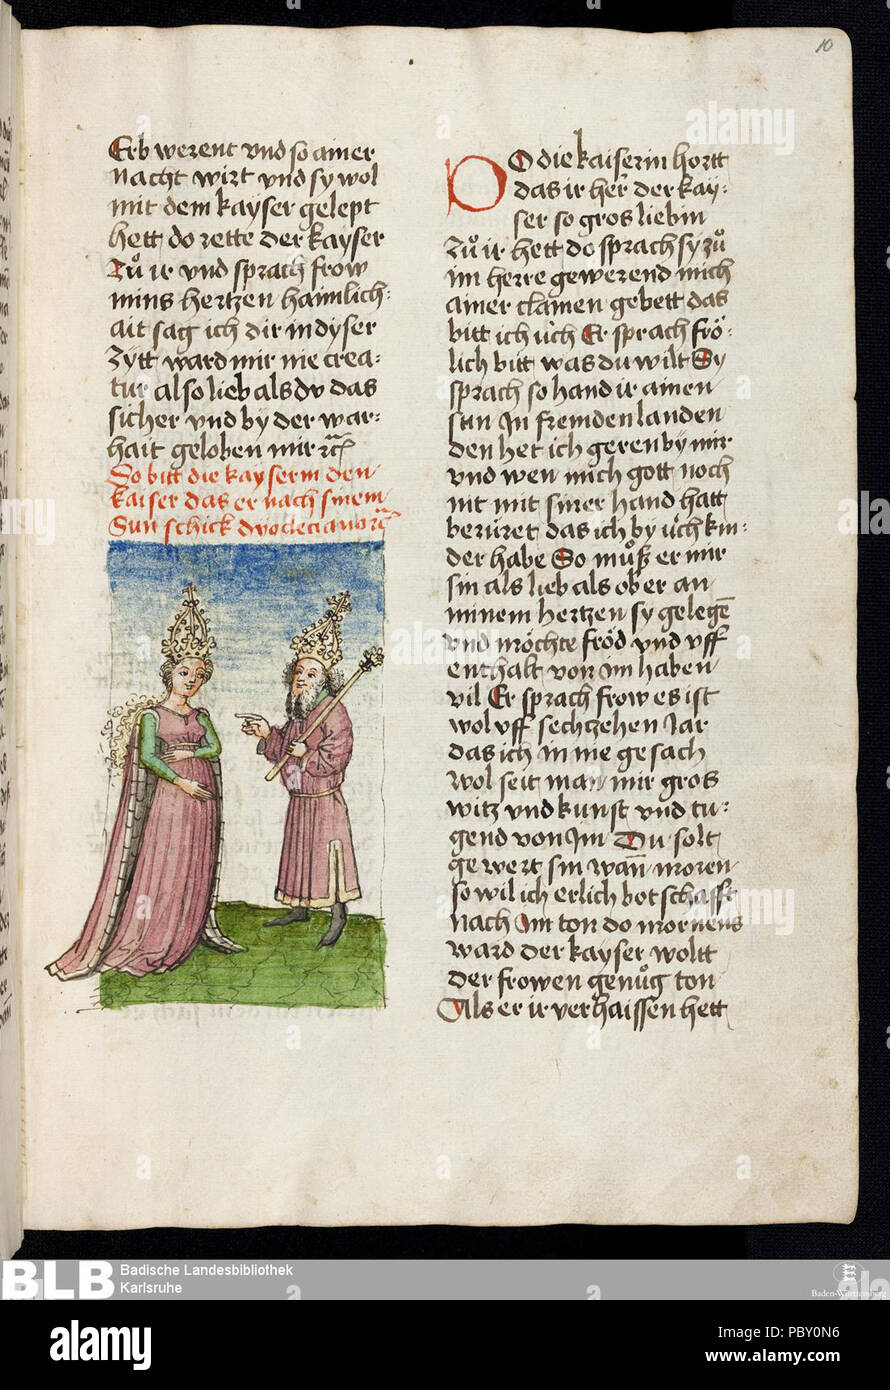 10
Erb werent vnd so ainer
nacht wirt vnd sy wol
mit dem kayser gelept
hett do rette der kayser
Zuͦ ir vnd sprach frow
mins hertzen haimlich:
ait sag ich dir in dyser
Zytt ward mir nie crea-
tur also lieb als dv das
sicher vnd by der war-
hait geloben mir
So bitt die kayserin den
kaiser das er nach sinem
Sun schick dyocleciano
DO die kaiserin hortt
das ir her der kay:
ser so gros lieb in
Zuͦ ir hett do sprach sy zuͦ
im herre gewerend mich
ainer clainen gebett das
bitt ich üch Er sprach frö:
lich bitt was du wilt Sy
sprach so hand ir ainen
sun In fremden landen
den het ich geren by mir
vnd wen mich gott noch
nit mit siner hand hatt
berüret das ich by üch kin:
der habe So muͦß er mir
sin als lieb als ob er an
minem hertzen sy gelegē
vnd möchte fröd vnd vff
enthalt von Im haben
vil Er sprach frow es ist
wol vff sechzehen Jar
das ich in nie gesach
wol seit man mir gros
witz vnd kunst vnd tu:
gend von Im Du solt
gewert sin wan̄ moren
so wil ich erlich botschafft
nach Im ton do mornens
ward der kayser woltt
der frowen genuͦg ton
Als er ir verhaissen hett
BLB Badische Landesbibliothek
Karlsruhe
Baden-Württemberg
alamy
Image ID: PBY0N6
www.alamy.com